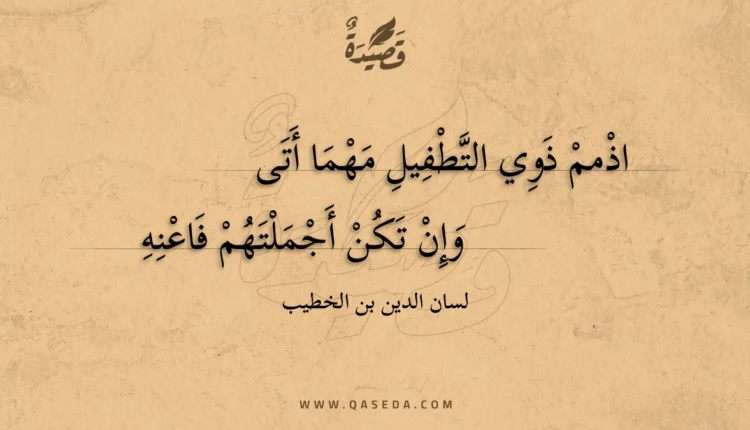 قَصِيْدَةٌ
اذْممْ ذَوِي التَّطْفِيلِ مَهْمَا أَتَى
وَإِنْ تَكُنْ أَجْمَلْتَهُمْ فَاعْنِهِ
لسان الدين بن الخطيب
WWW.QASEDA.COM